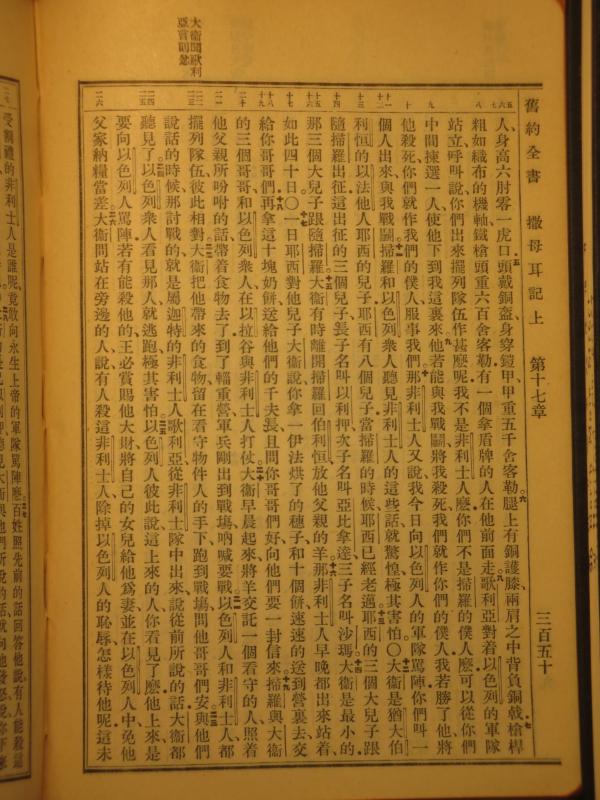 舊約全書 撒母耳記上 第十七章 三百五十
人、身高六肘零一虎口、頭戴銅盔身穿鎧甲甲重五千舍客勒、腿上有銅護膝兩肩之中背負銅戟、槍桿
粗如織布的機軸鐵槍頭重六百舍客勒有一個拿盾牌的人在他前面走歌利亞對着以色列的軍隊
站立呼叫說你們出來擺列隊伍作甚麼呢我不是非利士人麼你們不是掃羅的僕人麼可以從你們
中間揀選一人使他下到我這裏來他若能與我戰鬬將我殺死我們就作你們的僕人我若勝了他將
他殺死你們就作我們的僕人服事我們那非利士人又說我今日向以色列人的軍隊罵陣你們叫一
個人出來與我戰鬬掃羅和以色列衆人聽見非利士人的這些話就驚惶極其害怕○大衛是猶大伯
利恒的以法他人耶西的兒子耶西有八個兒子當掃羅的時候耶西已經老邁耶西的三個大兒子跟
隨掃羅出征這出征的三個兒子長子名叫以利押次子名叫亞比拿達三子名叫沙瑪大衛是最小的
那三個大兒子跟隨掃羅大衛有時離開掃羅回伯利恒放他父親的羊那非利士人早晚都出來站着
如此四十日○一日耶西對他兒子大衛說你拿一伊法烘了的穗子和十個餅速速的送到營裏去交
給你哥哥們再拿這十塊奶餅送給他們的千夫長且問你哥哥們好向他們要一封信來掃羅與大衛
的三個哥哥和以色列衆人在以拉谷與非利士人打仗大衛早晨起來將羊交託一個看守的人照着
他父親所吩咐的話帶着食物去了到了輜重營軍兵剛出到戰塲吶喊要戰以色列人和非利士人都
擺列隊伍彼此相對大衛把他帶來的食物留在看守物件人的手下跑到戰塲問他哥哥們安與他們
說話的時候那討戰的就是屬迦特的非利士人歌利亞從非利士隊中出來說從前所說的話大衛都
聽見了以色列衆人看見那人就逃跑極其害怕以色列人彼此說這上來的人你看見了麼他上來是
要向以色列人罵陣若有能殺他的王必賞賜他大財將自己的女兒給他爲妻並在以色列人中免他
父家納糧當差大衛問站在旁邊的人說有人殺這非利士人除掉以色列人的恥辱怎樣待他呢這未
受割禮的非利士人是誰呢竟敢向永生上帝的軍隊罵陣麼百姓照先前的話回答他說有人能殺這